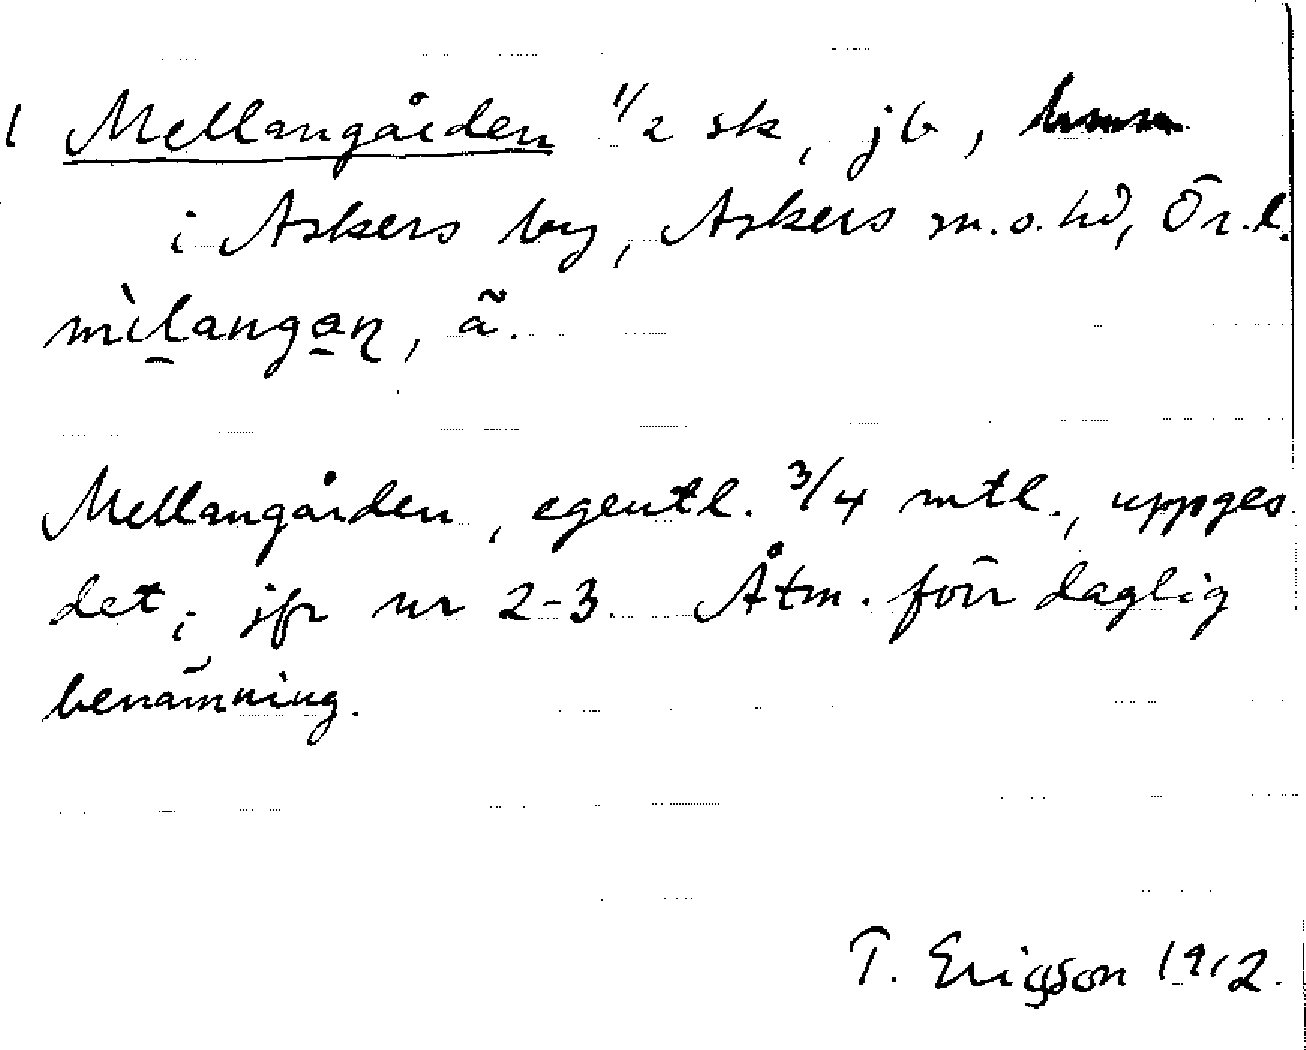 1 Mellangården 1/2 sk, jb,
i Askers by, Askers sn. o. hd, Ör. l.
mìlangan, ã.
Mellangården, egentl. 3/4 mtl., uppges
det; jfr nr 2-3. Åtm. förr daglig
benämning.
T. Ericsson 1912.